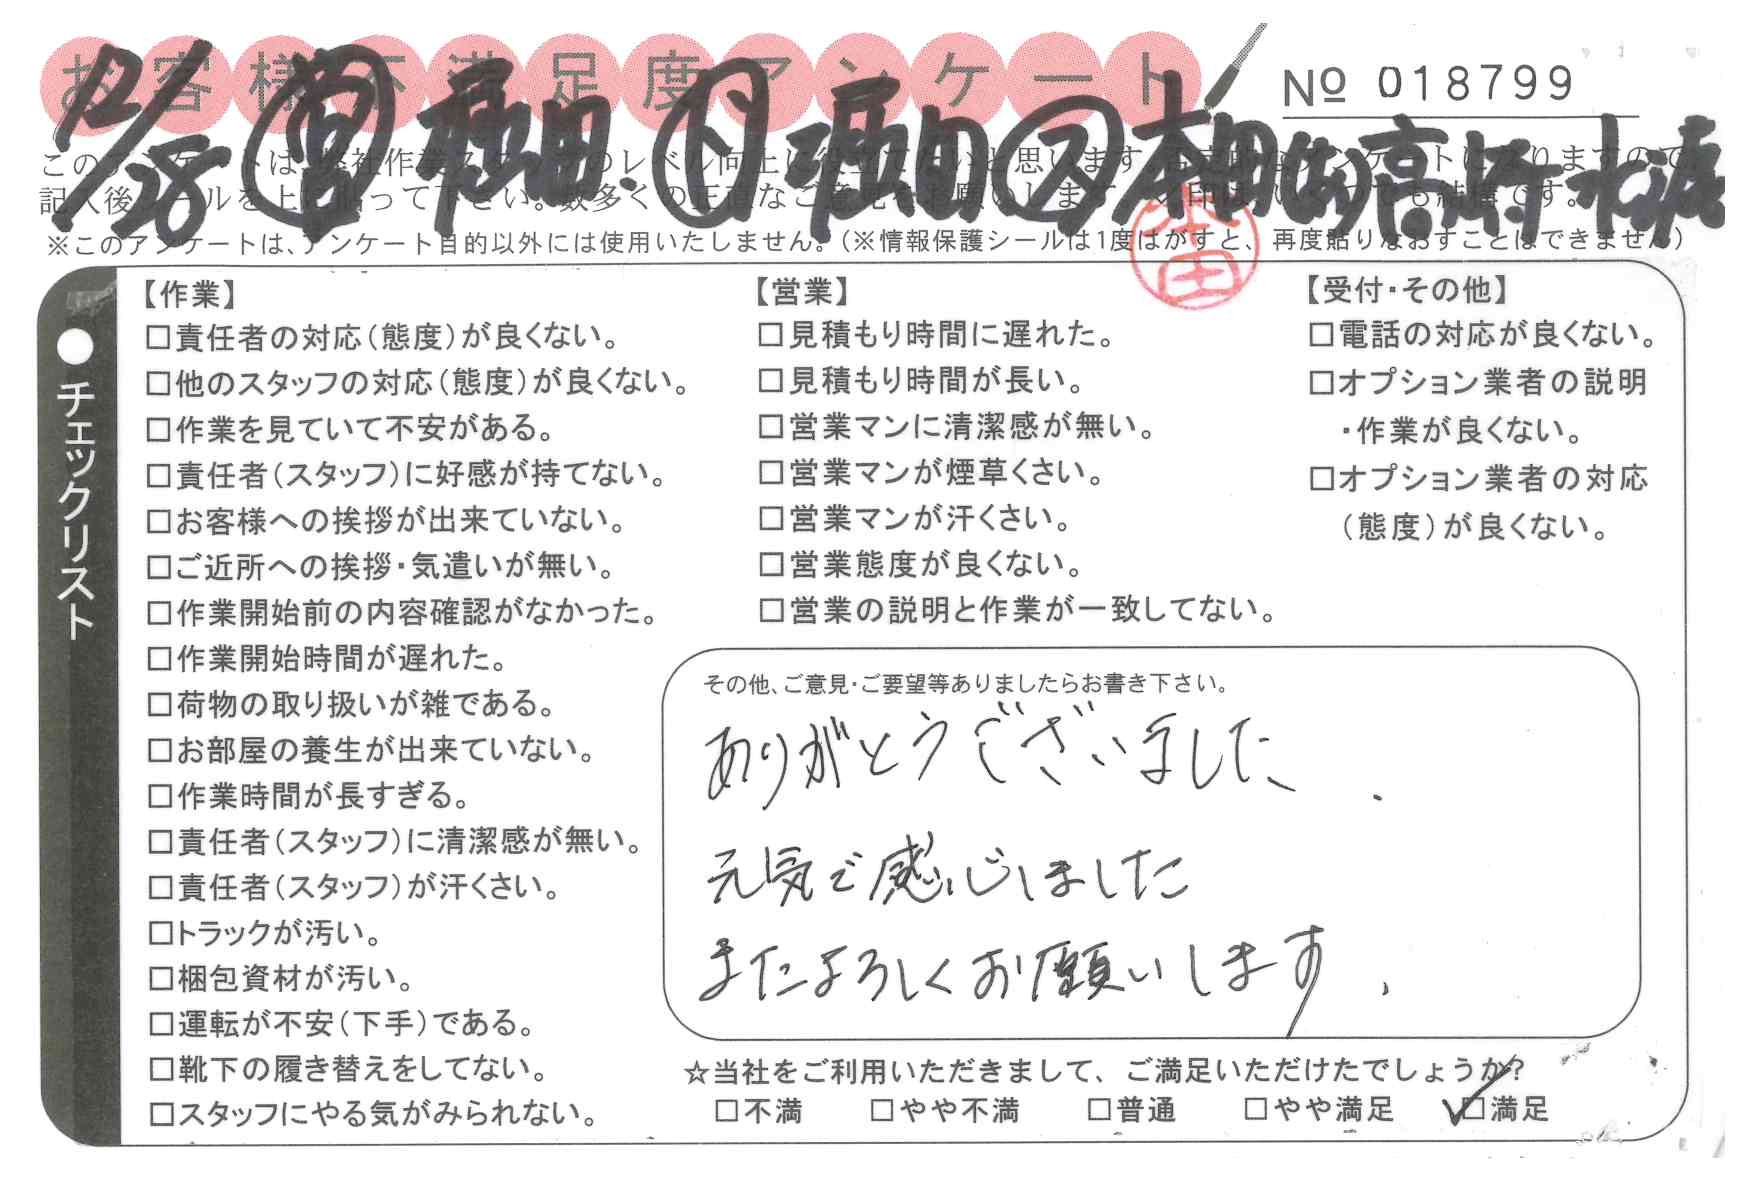 お客様不満足度アンケート
No 018799
12/28 営 福田 ト 福田 ス 本田
このアンケートは、弊社作業スタッフのレベル向上に役立てたいと思います
記入後シールを上に貼って下さい。数多くの正直なご意見をお願いします
※このアンケートは、アンケート目的以外には使用いたしません。(※情報保護シールは1度はがすと、再度貼りなおすことはできません)
本田
チェックリスト
【作業】
□責任者の対応(態度)が良くない。
□他のスタッフの対応(態度)が良くない。
□作業を見ていて不安がある。
□責任者(スタッフ)に好感が持てない。
□お客様への挨拶が出来ていない。
□ご近所への挨拶・気遣いが無い。
□作業開始前の内容確認がなかった。
□作業開始時間が遅れた。
□荷物の取り扱いが雑である。
□お部屋の養生が出来ていない。
□作業時間が長すぎる。
□責任者(スタッフ)に清潔感が無い。
□責任者(スタッフ)が汗くさい。
□トラックが汚い。
□梱包資材が汚い。
□運転が不安(下手)である。
□靴下の履き替えをしてない。
□スタッフにやる気がみられない。
【営業】
□見積もり時間に遅れた。
□見積もり時間が長い。
□営業マンに清潔感が無い。
□営業マンが煙草くさい。
□営業マンが汗くさい。
□営業態度が良くない。
□営業の説明と作業が一致してない。
【受付・その他】
□電話の対応が良くない。
□オプション業者の説明
・作業が良くない。
□オプション業者の対応
(態度)が良くない。
その他、ご意見・ご要望等ありましたらお書き下さい。
ありがとうございました.
元気で感心しました
またよろしくお願いします.
☆当社をご利用いただきまして、ご満足いただけたでしょうか?
□不満 □やや不満 □普通 □やや満足 ☑満足